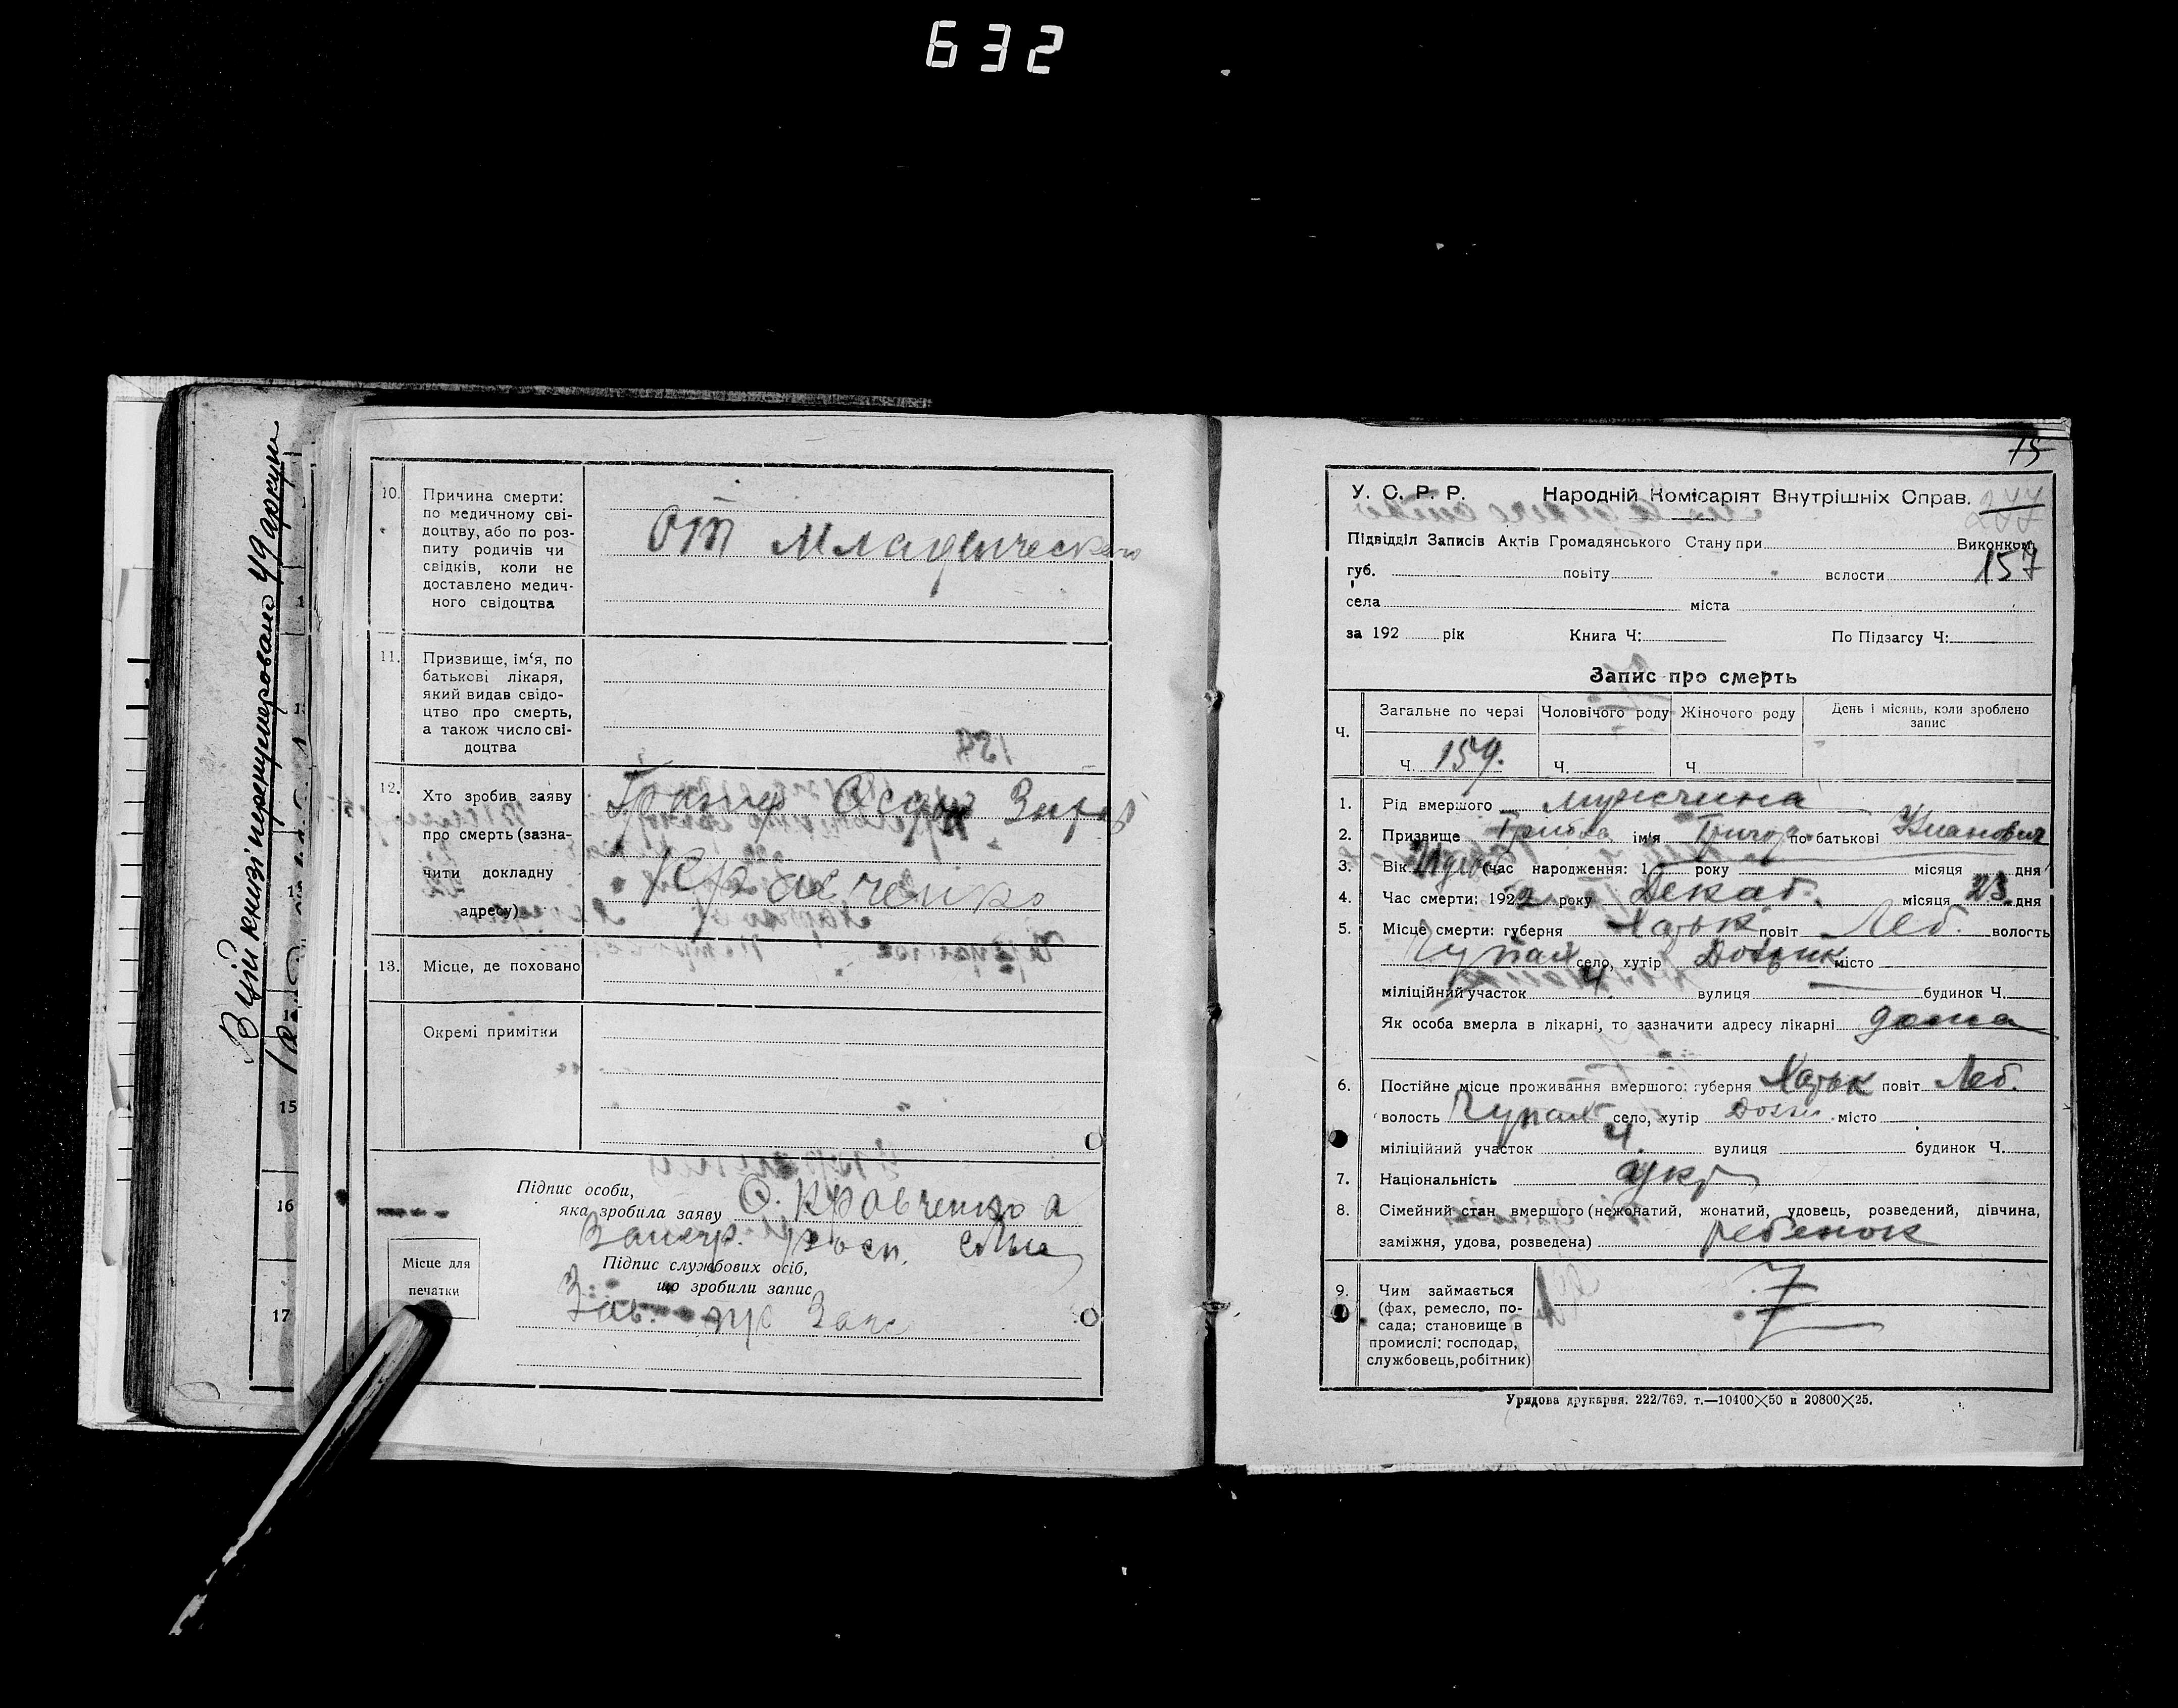 632
В цій книзі перенумеровано 49 аркуш
15
16
17
10. Причина смерти:
по медичному сві-
доцтву, або по роз-
питу родичів чи
свідків, коли не
доставлено медич-
ного свідоцтва
от Младическаго
11. Призвище, ім'я, по
батькові лікаря,
який видав свідо-
цтво про смерть,
а також число сві-
доцтва
12. Хто зробив заяву
про смерть (зазна-
чити докладну
адресу)
Кравченко
13. Місце, де поховано
Окремі примітки
Підпис особи,
яка зробила заяву О. Кравченко а
Підпис службових осіб,
що зробили запис
Місце для
печатки
Зав.
15
У. С. Р. Р. Народній Комісаріят Внутрішніх Справ.
277
Підвідділ Записів Актів Громадянського Стану при Виконком.
губ. повіту вслости 157
села міста
за 192 рік Книга Ч: По Підзагсу Ч:
Запис про смерть
Ч. Загальне по черзі Чоловічого роду Жіночого роду День і місяць, коли зроблено
запис
Ч. 159. Ч. Ч.
1. Рід вмершого мужчина
2. Призвище ім'я Григор по батькові Иванович
3. Вік (час народження: 1 року місяця дня
4. Час смерти: 1922 року Декаб. місяця 23 дня
5. Місце смерти: губерня Харьк повіт Леб. волость
Чупах село, хутір Довжик місто
міліційний участок 4 вулиця — будинок Ч.
Як особа вмерла в лікарні, то зазначити адресу лікарні дома
6. Постійне місце проживання вмершого: губерня Харьк повіт Леб.
волость Чупах село, хутір Довж. місто
міліційний участок 4 вулиця будинок Ч.
7. Національність укр
8. Сімейний стан вмершого (нежонатий, жонатий, удовець, розведений, дівчина,
заміжня, удова, розведена) ребенок
9. Чим займається
(фах, ремесло, по-
сада; становище в
промислі: господар,
службовець, робітник)
Урядова друкарня. 222/769. т.—10400×50 и 20800×25.